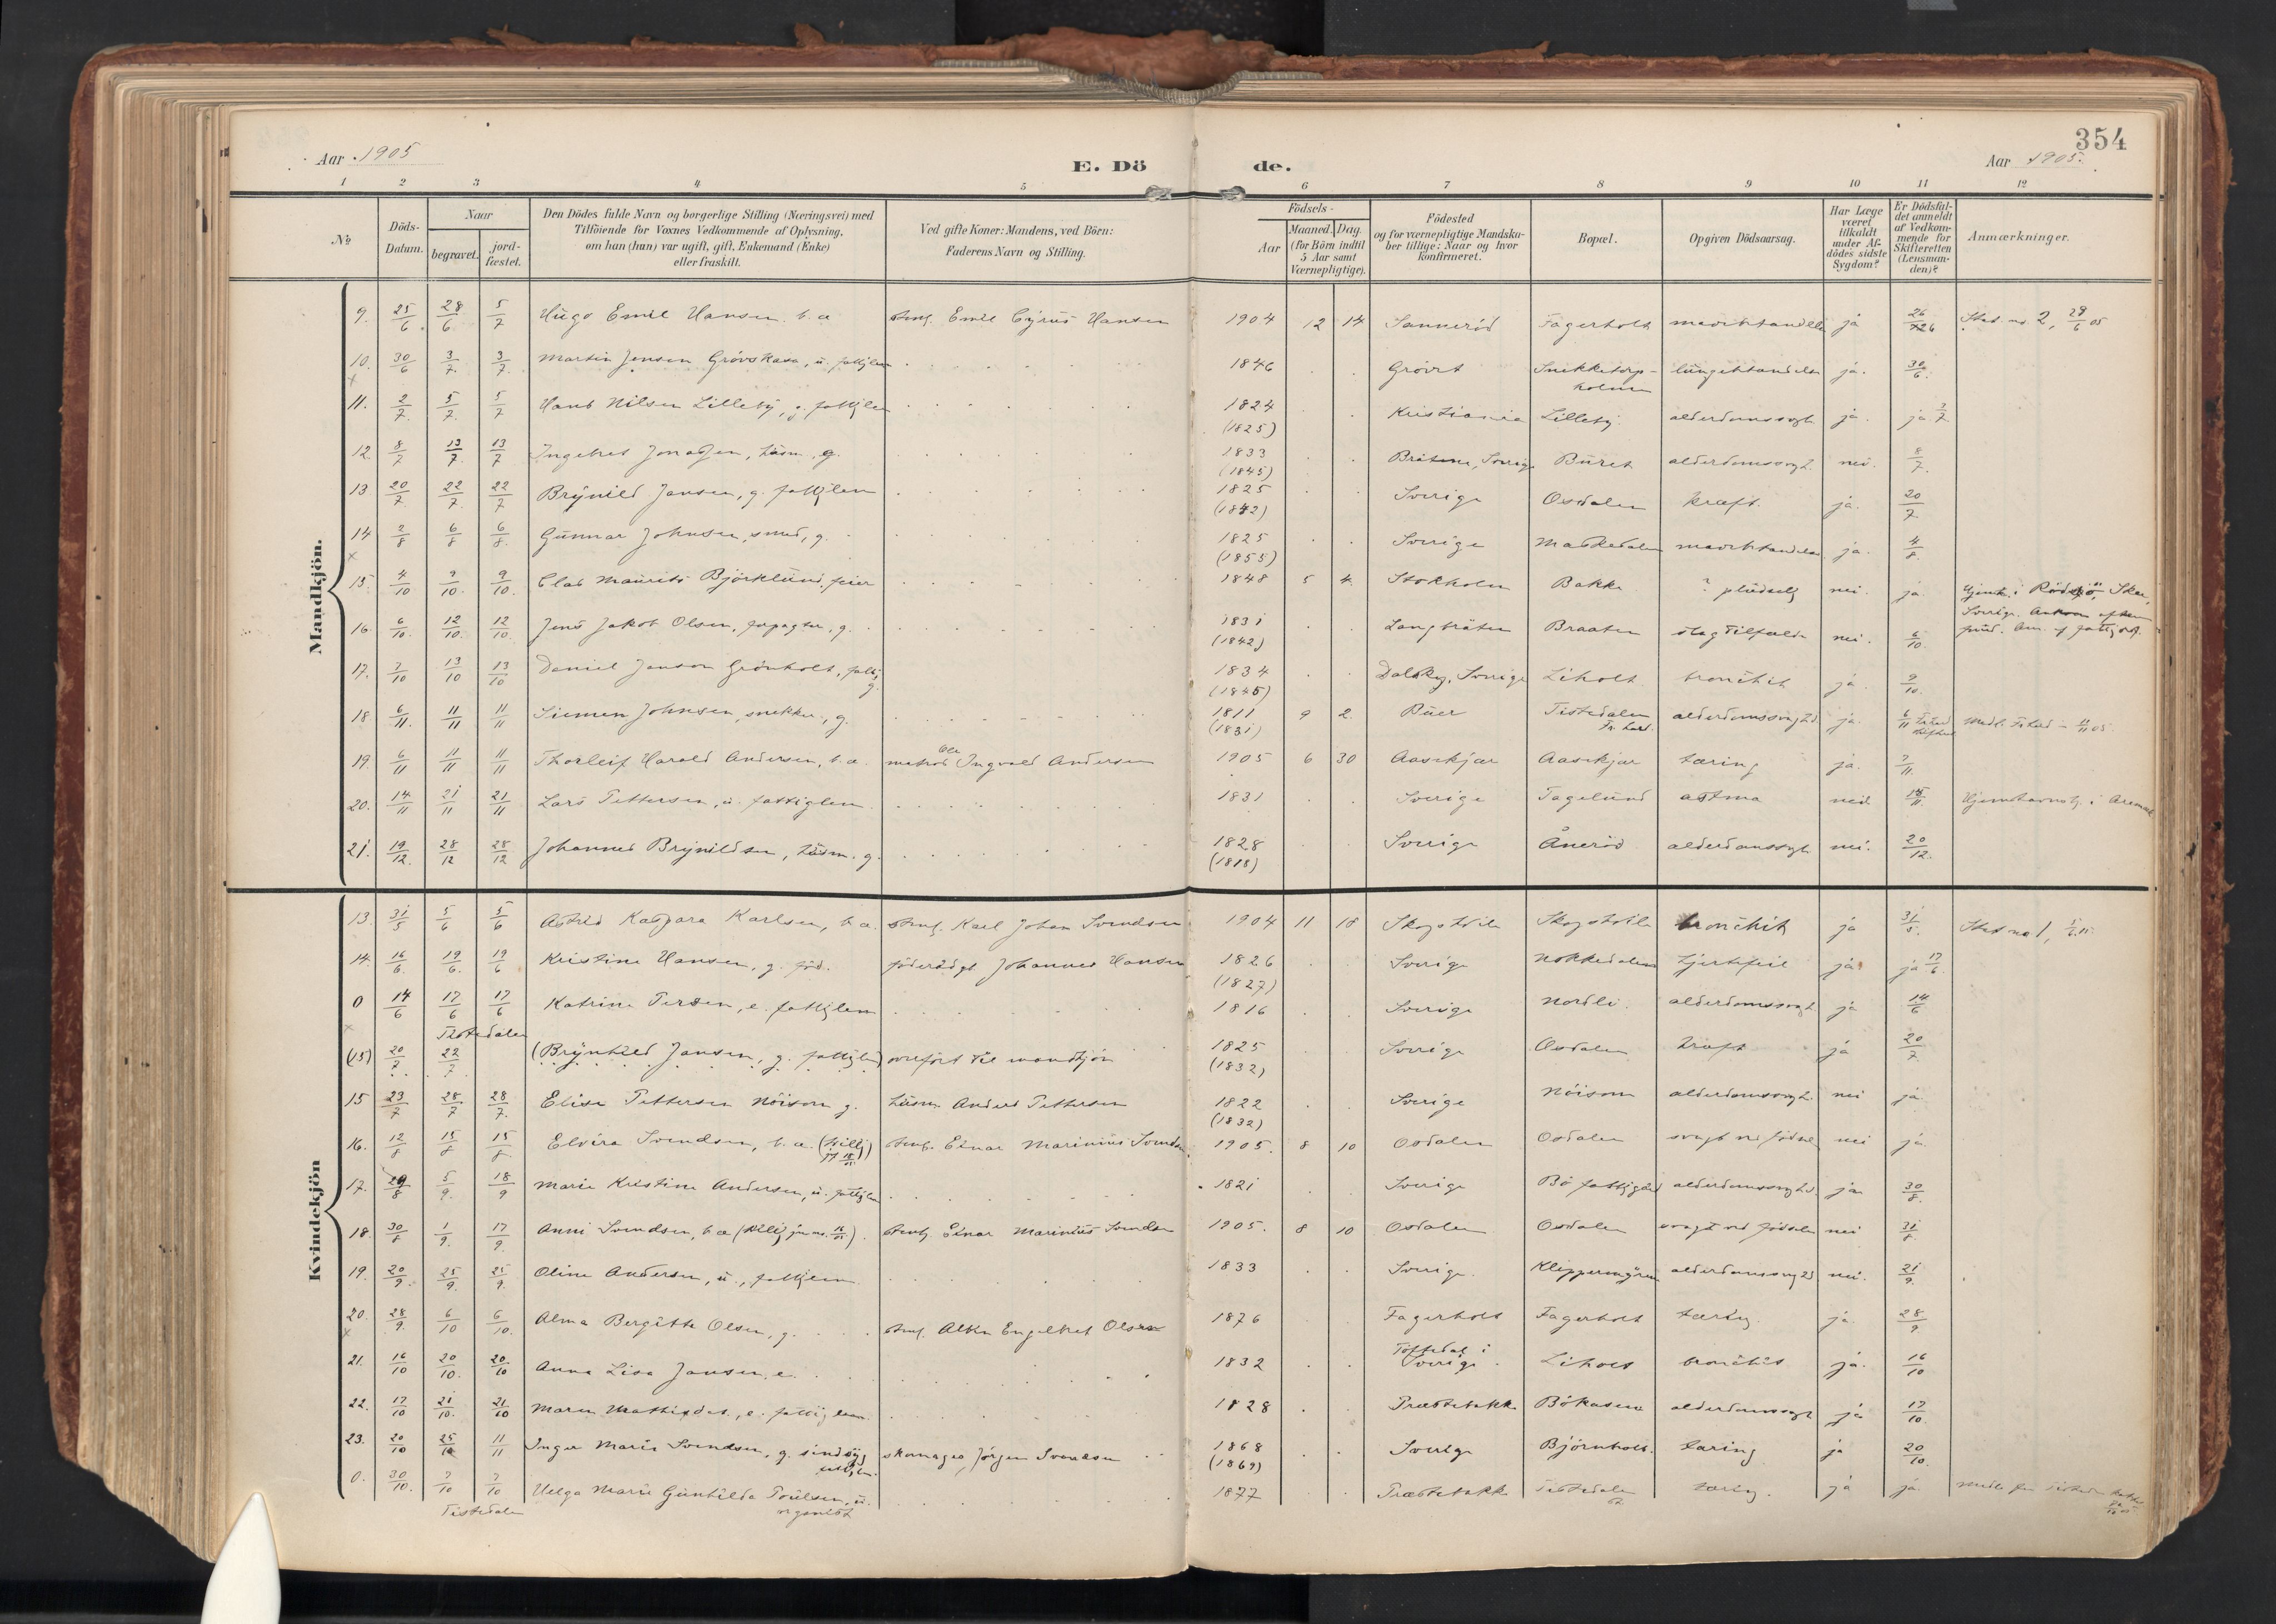 354
Aar 1905
E. Dö
de.
Aar 1905.
1 2 3 4 5 6 7 8 9 10 11 12
No
Döds-Datum.
Naar
begravet.
jord-fæstet.
Den Dödes fulde Navn og borgerlige Stilling (Næringsvei) med
Tilföiende for Voxnes Vedkommende af Oplysning,
om han (hun) var ugift, gift, Enkemand (Enke)
eller fraskilt.
Ved gifte Koner: Mandens, ved Börn:
Faderens Navn og Stilling.
Födsels-
Aar
Maaned. Dag.
(for Börn indtil
5 Aar samt
Værnepligtige).
Födested
og for værnepligtige Mandska-
ber tillige: Naar og hvor
konfirmeret.
Bopæl.
Opgiven Dödsaarsag.
Har Læge
været
tilkaldt
under Af-
dödes sidste
Sygdom?
Er Dödsfal-
det anmeldt
af Vedkom-
mende for
Skifteretten
(Lensman-
den)?
Anmærkninger.
Mandkjön.
9. 25/6. 28/6. 5/7 Hugo Emil Hansen b. a. Emil Cyrus Hansen 1904 12 14 Sanneröd Fagerholt ja 26/6
10. 30/6 3/7. 3/7. Martin Jensen Grövskasa, u. fattiglem 1846 ja. 30/6.
11. 2/7. 5/7. 5/7 Hans Nilsen Lilleby, g. fattiglem 1824 (1825) Kristiania Lilleby alderdomssvagh. ja. ja 3/7
12. 8/7 13/7. 13/7 Ingebret Jonassen, husm. g. 1833 (1845) Sverige Buret alderdomssvagh. nei. 8/7.
13 20/7. 22/7. 22/7 Brynild Jansen, g. fattiglem 1825 (1842) Sverige Osdalen kræft. ja. 20/7
14 2/8 6/8 6/8. Gunnar Johnsen, smed, g. 1825 (1855) Sverige ja. 4/8
15. 4/10 9/10. 9/10. Clas Maurits Björklund, feier 1848 5 4. Stokholm Bakke ? pludselig nei. ja.
16. 6/10. 12/10. 12/10. Jens Jakob Olsen, forpagter, g. 1831 (1842) Langbråten Braaten slagtilfælde nei. 6/10
17. 7/10 13/10 13/10 Daniel Janson Grönholt, fattig g. 1834 (1845) Sverige Liholt bronchit ja 9/10.
18. 6/11. 11/11 11/11 Simen Johnsen, snekker, g. 1811 (1831) 9 2. Buer Tistedalen Fr. hald alderdomssvaghed ja. 6/11
19. 6/11 11/11 11/11 Thorleif Harald Andersen, b. a. matros Ingvald Andersen 1905 6 30 Aasekjær Aasekjær tæring ja. 7/11.
20. 14/11 21/11 21/11 Lars Pettersen, u. fattiglem 1831 Sverige Tagelund astma nei. 15/11. Hjemstavnsb. i Aremark
21. 19/12. 28/12 28/12 Johannes Brynildsen, husm. g. 1828 (1818) Sverige Åneröd alderdomssvagh. nei. 20/12.
Kvindekjön
13. 31/5 5/6 5/6 Astrid Kaspara Karlsen, b. a. Karl Johan Svendsen 1904 11 18 Skogstvile Skogstvile bronchit ja 31/5.
14. 16/6. 19/6. 19/6 Kristine Hansen, g. föd. föderådsm. Johannes Hansen 1826 (1827) Sverige Nokkedalen hjertefeil ja. ja 17/6.
0 14/6 17/6 17/6 Katrine Persen, e. fattiglem 1816 Sverige Nordli. alderdomssvagh. ja 14/6
Tistedalen
(15) 20/7 22/7 (Brynhild Jansen, g. fattiglem) overfört til mandkjön 1825 (1832) Sverige Osdalen kræft ja 20/7
15 23/7 28/7 28/7. Elise Pettersen Nöisom g. husm. Anders Pettersen 1822 (1832) Sverige Nöisom alderdomssvagh. nei ja.
16. 12/8 15/8 15/8. Elvira Svendsen, b. a. Einar Marinius Svendsen 1905. 8 10 Osdalen Osdalen svagt ved födsel nei ja.
17. 29/8 5/9. 18/9 Marie Kristine Andersen, u. fattiglem 1821 Sverige Bö fattiggård alderdomssvaghed. ja 30/8.
18. 30/8 1/9. 17/9. Anni Svendsen, b. a. Einar Marinius Svendsen 1905. 8 10 Osdalen Osdalen svagt ved födselen nei 31/8.
19. 20/9. 25/9. 25/9. Oline Andersen, u., fattiglem 1833 Sverige. alderdomssvaghed nei. 21/9.
20. 28/9. 6/10 6/10. Alma Bergitte Olsen, g. Engebret Olsen 1876 Fagerholt Fagerholt tæring ja. 28/9
21. 16/10 20/10. 20/10 Anna Lisa Jansen, e. 1832 Töftedal i Sverige. Liholt bronchit ja. 16/10
22. 17/10 21/10. 21/10 Maren Mathisdat., e. fattiglem 1828 Præstebakke Bökasen alderdomssvagh ja 17/10.
23. 20/10 25/10 11/11 Inger Marie Svendsen, g. sindsyg skomager Jörgen Svendsen 1868 (1869) Sverige Björnholt. tæring ja 20/10.
0. 30/10. 7/10 7/10 Helga Marie Gunhilda Poulsen, u. organist 1877 Præstebakke Tistedalen tæring. ja ja
Tistedalen